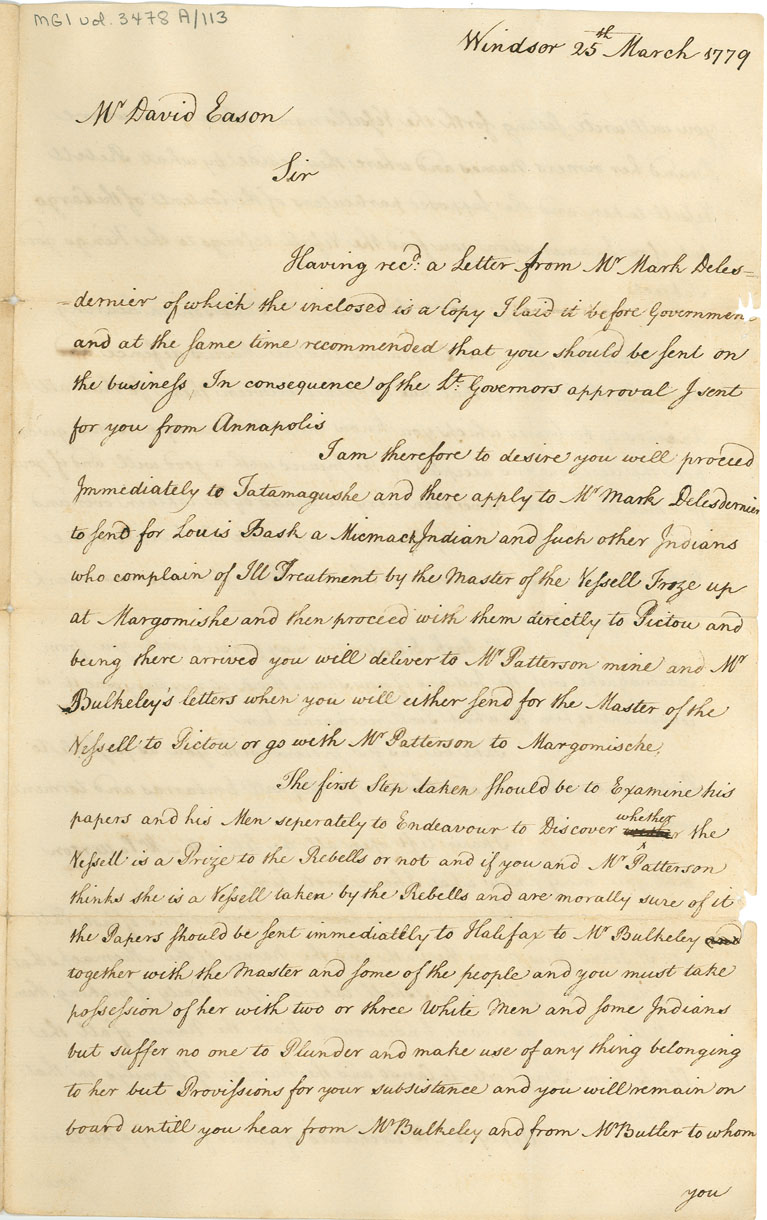 MG1 vol. 3478 A/113
Windsor 25th March 1779
Mr David Eason
Sir
Having recd: a Letter from Mr Mark Deles=
=dernier of which the inclosed is a Copy I laid it before Governmen
and at the same time recommended that you should be sent on
the business, In consequence of the Lt: Governors approval I sent
for you from Annapolis
I am therefore to desire you will proceed
Immediately to Tatamagushe and there apply to Mr Mark Delesdernier
to send for Louis Bask a Micmack Indian and such other Indians
who complain of Ill Treatment by the Master of the Vessell Froze up
at Margomishe and then proceed with them directly to Pictou and
being there arrived you will deliver to Mr Patterson mine and Mr
Bulkeley's letters when you will either send for the Master of the
Vessell to Pictou or go with Mr Patterson to Margomische.
The first Step taken should be to Examine his
papers and his Men seperately to Endeavour to Discover whether the
Vessell is a Prize to the Rebells or not and if you and Mr Patterson
thinks she is a Vessell taken by the Rebells and are morally sure of it
the Papers should be sent immediately to Halifax to Mr Bulkeley and
together with the Master and some of the people and you must take
possession of her with two or three White Men and some Indians
but suffer no one to Plunder and make use of any thing belonging
to her but Provissions for your subsistance and you will remain on
board untill you hear from Mr Bulkeley and from Mr Butler to whom
you